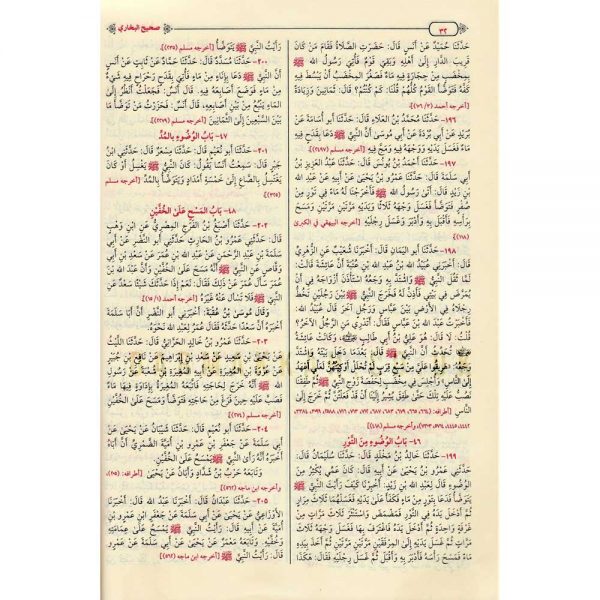 صحيح البخاري
٣٢
حَدَّثَنَا حُمَيْدٌ عَنْ أَنَسٍ قَالَ: حَضَرَتِ الصَّلَاةُ فَقَامَ مَنْ كَانَ
قَرِيبَ الدَّارِ إِلَى أَهْلِهِ وَبَقِيَ قَوْمٌ، فَأُتِيَ رَسُولُ اللهِ ﷺ
بِمِخْضَبٍ مِنْ حِجَارَةٍ فِيهِ مَاءٌ فَصَغُرَ الْمِخْضَبُ أَنْ يَبْسُطَ فِيهِ
كَفَّهُ فَتَوَضَّأَ الْقَوْمُ كُلُّهُمْ قُلْنَا: كَمْ كُنْتُمْ؟ قَالَ: ثَمَانِينَ وَزِيَادَةً
١٩٦- حَدَّثَنَا مُحَمَّدُ بْنُ الْعَلَاءِ قَالَ: حَدَّثَنَا أَبُو أُسَامَةَ عَنْ
بُرَيْدٍ عَنْ أَبِي بُرْدَةَ عَنْ أَبِي مُوسَى أَنَّ النَّبِيَّ ﷺ دَعَا بِقَدَحٍ فِيهِ
مَاءٌ فَغَسَلَ يَدَيْهِ وَوَجْهَهُ فِيهِ وَمَجَّ فِيهِ
١٩٧- حَدَّثَنَا أَحْمَدُ بْنُ يُونُسَ قَالَ: حَدَّثَنَا عَبْدُ الْعَزِيزِ بْنُ
أَبِي سَلَمَةَ قَالَ: حَدَّثَنَا عَمْرُو بْنُ يَحْيَى عَنْ أَبِيهِ عَنْ عَبْدِ اللهِ
بْنِ زَيْدٍ قَالَ: أَتَى رَسُولُ اللهِ ﷺ فَأَخْرَجْنَا لَهُ مَاءً فِي تَوْرٍ مِنْ
صُفْرٍ فَتَوَضَّأَ فَغَسَلَ وَجْهَهُ ثَلَاثًا وَيَدَيْهِ مَرَّتَيْنِ مَرَّتَيْنِ وَمَسَحَ
بِرَأْسِهِ فَأَقْبَلَ بِهِ وَأَدْبَرَ وَغَسَلَ رِجْلَيْهِ
١٩٨- حَدَّثَنَا أَبُو الْيَمَانِ قَالَ: أَخْبَرَنَا شُعَيْبٌ عَنِ الزُّهْرِيِّ
قَالَ: أَخْبَرَنِي عُبَيْدُ اللهِ بْنُ عَبْدِ اللهِ بْنِ عُتْبَةَ أَنَّ عَائِشَةَ قَالَتْ:
لَمَّا ثَقُلَ النَّبِيُّ ﷺ وَاشْتَدَّ بِهِ وَجَعُهُ اسْتَأْذَنَ أَزْوَاجَهُ فِي أَنْ
يُمَرَّضَ فِي بَيْتِي فَأَذِنَّ لَهُ فَخَرَجَ النَّبِيُّ ﷺ بَيْنَ رَجُلَيْنِ تَخُطُّ
رِجْلَاهُ فِي الْأَرْضِ بَيْنَ عَبَّاسٍ وَرَجُلٍ آخَرَ قَالَ عُبَيْدُ اللهِ:
فَأَخْبَرْتُ عَبْدَ اللهِ بْنَ عَبَّاسٍ فَقَالَ: أَتَدْرِي مَنِ الرَّجُلُ الْآخَرُ؟
قُلْتُ: لَا قَالَ: هُوَ عَلِيُّ بْنُ أَبِي طَالِبٍ وَكَانَتْ عَائِشَةُ
تُحَدِّثُ أَنَّ النَّبِيَّ ﷺ قَالَ: بَعْدَمَا دَخَلَ بَيْتَهُ وَاشْتَدَّ
وَجَعُهُ: هَرِيقُوا عَلَيَّ مِنْ سَبْعِ قِرَبٍ لَمْ تُحْلَلْ أَوْكِيَتُهُنَّ لَعَلِّي أَعْهَدُ إِلَى
النَّاسِ وَأُجْلِسَ فِي مِخْضَبٍ لِحَفْصَةَ زَوْجِ النَّبِيِّ ﷺ ثُمَّ طَفِقْنَا
نَصُبُّ عَلَيْهِ تِلْكَ حَتَّى طَفِقَ يُشِيرُ إِلَيْنَا أَنْ قَدْ فَعَلْتُنَّ ثُمَّ خَرَجَ إِلَى
النَّاسِ
٤٦- بَابُ الْوُضُوءِ مِنَ التَّوْرِ
١٩٩- حَدَّثَنَا خَالِدُ بْنُ مَخْلَدٍ قَالَ: حَدَّثَنَا سُلَيْمَانُ قَالَ:
حَدَّثَنِي عَمْرُو بْنُ يَحْيَى عَنْ أَبِيهِ قَالَ: كَانَ عَمِّي يُكْثِرُ مِنَ
الْوُضُوءِ قَالَ لِعَبْدِ اللهِ بْنِ زَيْدٍ: أَخْبِرْنِي كَيْفَ رَأَيْتَ النَّبِيَّ ﷺ
يَتَوَضَّأُ فَدَعَا بِتَوْرٍ مِنْ مَاءٍ فَكَفَأَ عَلَى يَدَيْهِ فَغَسَلَهُمَا ثَلَاثَ مِرَارٍ
ثُمَّ أَدْخَلَ يَدَهُ فِي التَّوْرِ فَمَضْمَضَ وَاسْتَنْثَرَ ثَلَاثَ مَرَّاتٍ مِنْ
غَرْفَةٍ وَاحِدَةٍ ثُمَّ أَدْخَلَ يَدَهُ فَاغْتَرَفَ بِهَا فَغَسَلَ وَجْهَهُ ثَلَاثَ
مَرَّاتٍ ثُمَّ غَسَلَ يَدَيْهِ إِلَى الْمِرْفَقَيْنِ مَرَّتَيْنِ مَرَّتَيْنِ ثُمَّ أَخَذَ بِيَدِهِ
مَاءً فَمَسَحَ رَأْسَهُ فَأَدْبَرَ بِهِ وَأَقْبَلَ ثُمَّ غَسَلَ رِجْلَيْهِ فَقَالَ: هَكَذَا
رَأَيْتُ النَّبِيَّ ﷺ يَتَوَضَّأُ [أخرجه مسلم (٢٣٥)].
٢٠٠- حَدَّثَنَا مُسَدَّدٌ قَالَ: حَدَّثَنَا حَمَّادٌ عَنْ ثَابِتٍ عَنْ أَنَسٍ
أَنَّ النَّبِيَّ ﷺ دَعَا بِإِنَاءٍ مِنْ مَاءٍ فَأُتِيَ بِقَدَحٍ رَحْرَاحٍ فِيهِ شَيْءٌ
مِنْ مَاءٍ فَوَضَعَ أَصَابِعَهُ فِيهِ. قَالَ أَنَسٌ: فَجَعَلْتُ أَنْظُرُ إِلَى
الْمَاءِ يَنْبُعُ مِنْ بَيْنِ أَصَابِعِهِ، قَالَ أَنَسٌ: فَحَزَرْتُ مَنْ تَوَضَّأَ مَا
بَيْنَ السَّبْعِينَ إِلَى الثَّمَانِينَ [أخرجه مسلم (٢٢٧٩)].
٤٧- بَابُ الْوُضُوءِ بِالْمُدِّ
٢٠١- حَدَّثَنَا أَبُو نُعَيْمٍ قَالَ: حَدَّثَنَا مِسْعَرٌ قَالَ: حَدَّثَنِي ابْنُ
جَبْرٍ قَالَ: سَمِعْتُ أَنَسًا يَقُولُ: كَانَ النَّبِيُّ ﷺ يَغْسِلُ أَوْ كَانَ
يَغْتَسِلُ بِالصَّاعِ إِلَى خَمْسَةِ أَمْدَادٍ وَيَتَوَضَّأُ بِالْمُدِّ [أخرجه مسلم
(٣٢٥)].
٤٨- بَابُ الْمَسْحِ عَلَى الْخُفَّيْنِ
٢٠٢- حَدَّثَنَا أَصْبَغُ بْنُ الْفَرَجِ الْمِصْرِيُّ عَنِ ابْنِ وَهْبٍ
قَالَ: حَدَّثَنِي عَمْرُو بْنُ الْحَارِثِ حَدَّثَنِي أَبُو النَّضْرِ عَنْ أَبِي
سَلَمَةَ بْنِ عَبْدِ الرَّحْمَنِ عَنْ عَبْدِ اللهِ بْنِ عُمَرَ عَنْ سَعْدِ بْنِ أَبِي
وَقَّاصٍ عَنِ النَّبِيِّ ﷺ أَنَّهُ مَسَحَ عَلَى الْخُفَّيْنِ وَأَنَّ عَبْدَ اللهِ بْنَ
عُمَرَ سَأَلَ عُمَرَ عَنْ ذَلِكَ فَقَالَ: نَعَمْ إِذَا حَدَّثَكَ شَيْئًا سَعْدٌ عَنِ
النَّبِيِّ ﷺ فَلَا تَسْأَلْ عَنْهُ غَيْرَهُ [أخرجه أحمد (١/ ١٥)].
وَقَالَ مُوسَى بْنُ عُقْبَةَ: أَخْبَرَنِي أَبُو النَّضْرِ أَنَّ أَبَا سَلَمَةَ
أَخْبَرَهُ أَنَّ سَعْدًا حَدَّثَهُ فَقَالَ عُمَرُ لِعَبْدِ اللهِ نَحْوَهُ.
٢٠٣- حَدَّثَنَا عَمْرُو بْنُ خَالِدٍ الْحَرَّانِيُّ قَالَ: حَدَّثَنَا اللَّيْثُ
عَنْ يَحْيَى بْنِ سَعِيدٍ عَنْ سَعْدِ بْنِ إِبْرَاهِيمَ عَنْ نَافِعِ بْنِ جُبَيْرٍ
عَنْ عُرْوَةَ بْنِ الْمُغِيرَةِ عَنْ أَبِيهِ الْمُغِيرَةِ بْنِ شُعْبَةَ عَنْ رَسُولِ
اللهِ ﷺ أَنَّهُ خَرَجَ لِحَاجَتِهِ فَاتَّبَعَهُ الْمُغِيرَةُ بِإِدَاوَةٍ فِيهَا مَاءٌ
فَصَبَّ عَلَيْهِ حِينَ فَرَغَ مِنْ حَاجَتِهِ فَتَوَضَّأَ وَمَسَحَ عَلَى الْخُفَّيْنِ
[أخرجه مسلم (٢٧٤)].
٢٠٤- حَدَّثَنَا أَبُو نُعَيْمٍ قَالَ: حَدَّثَنَا شَيْبَانُ عَنْ يَحْيَى عَنْ
أَبِي سَلَمَةَ عَنْ جَعْفَرِ بْنِ عَمْرِو بْنِ أُمَيَّةَ الضَّمْرِيِّ أَنَّ أَبَاهُ
أَخْبَرَهُ أَنَّهُ رَأَى النَّبِيَّ ﷺ يَمْسَحُ عَلَى الْخُفَّيْنِ
وَتَابَعَهُ حَرْبُ بْنُ شَدَّادٍ وَأَبَانُ عَنْ يَحْيَى [أطرافه: ٢٠٥.
وأخرجه ابن ماجه (٥٦٢)].
٢٠٥- حَدَّثَنَا عَبْدَانُ قَالَ: أَخْبَرَنَا عَبْدُ اللهِ قَالَ: أَخْبَرَنَا
الْأَوْزَاعِيُّ عَنْ يَحْيَى عَنْ أَبِي سَلَمَةَ عَنْ جَعْفَرِ بْنِ عَمْرِو بْنِ
أُمَيَّةَ عَنْ أَبِيهِ قَالَ: رَأَيْتُ النَّبِيَّ ﷺ يَمْسَحُ عَلَى عِمَامَتِهِ
وَخُفَّيْهِ. وَتَابَعَهُ مَعْمَرٌ عَنْ يَحْيَى عَنْ أَبِي سَلَمَةَ عَنْ عَمْرٍو
قَالَ: رَأَيْتُ النَّبِيَّ ﷺ [أخرجه ابن ماجه (٥٦٢)].